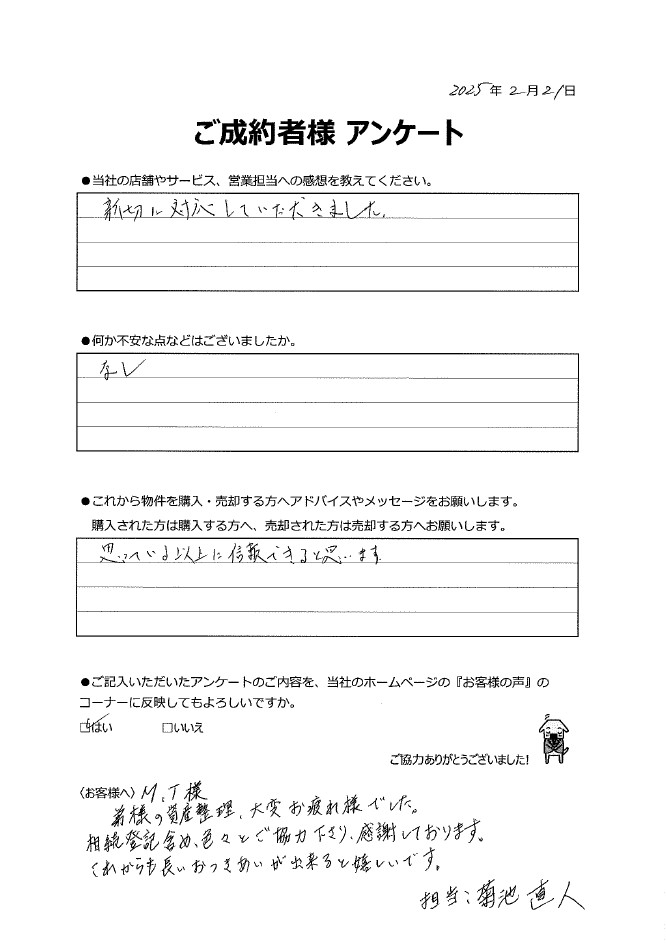 2025年2月21日
ご成約者様 アンケート
●当社の店舗やサービス、営業担当への感想を教えてください。
親切に対応していただきました。
●何か不安な点などはございましたか。
なし
●これから物件を購入・売却する方へアドバイスやメッセージをお願いします。
購入された方は購入する方へ、売却された方は売却する方へお願いします。
思っている以上に信頼できると思います
●ご記入いただいたアンケートのご内容を、当社のホームページの『お客様の声』の
コーナーに反映してもよろしいですか。
☑はい □いいえ
ご協力ありがとうございました!
〈お客様へ〉M.T様
様の資産整理、大変お疲れ様でした。
相続登記含め、色々とご協力下さり、感謝しております。
これからも長いおつきあいが出来ると嬉しいです。
担当:菊池 直人